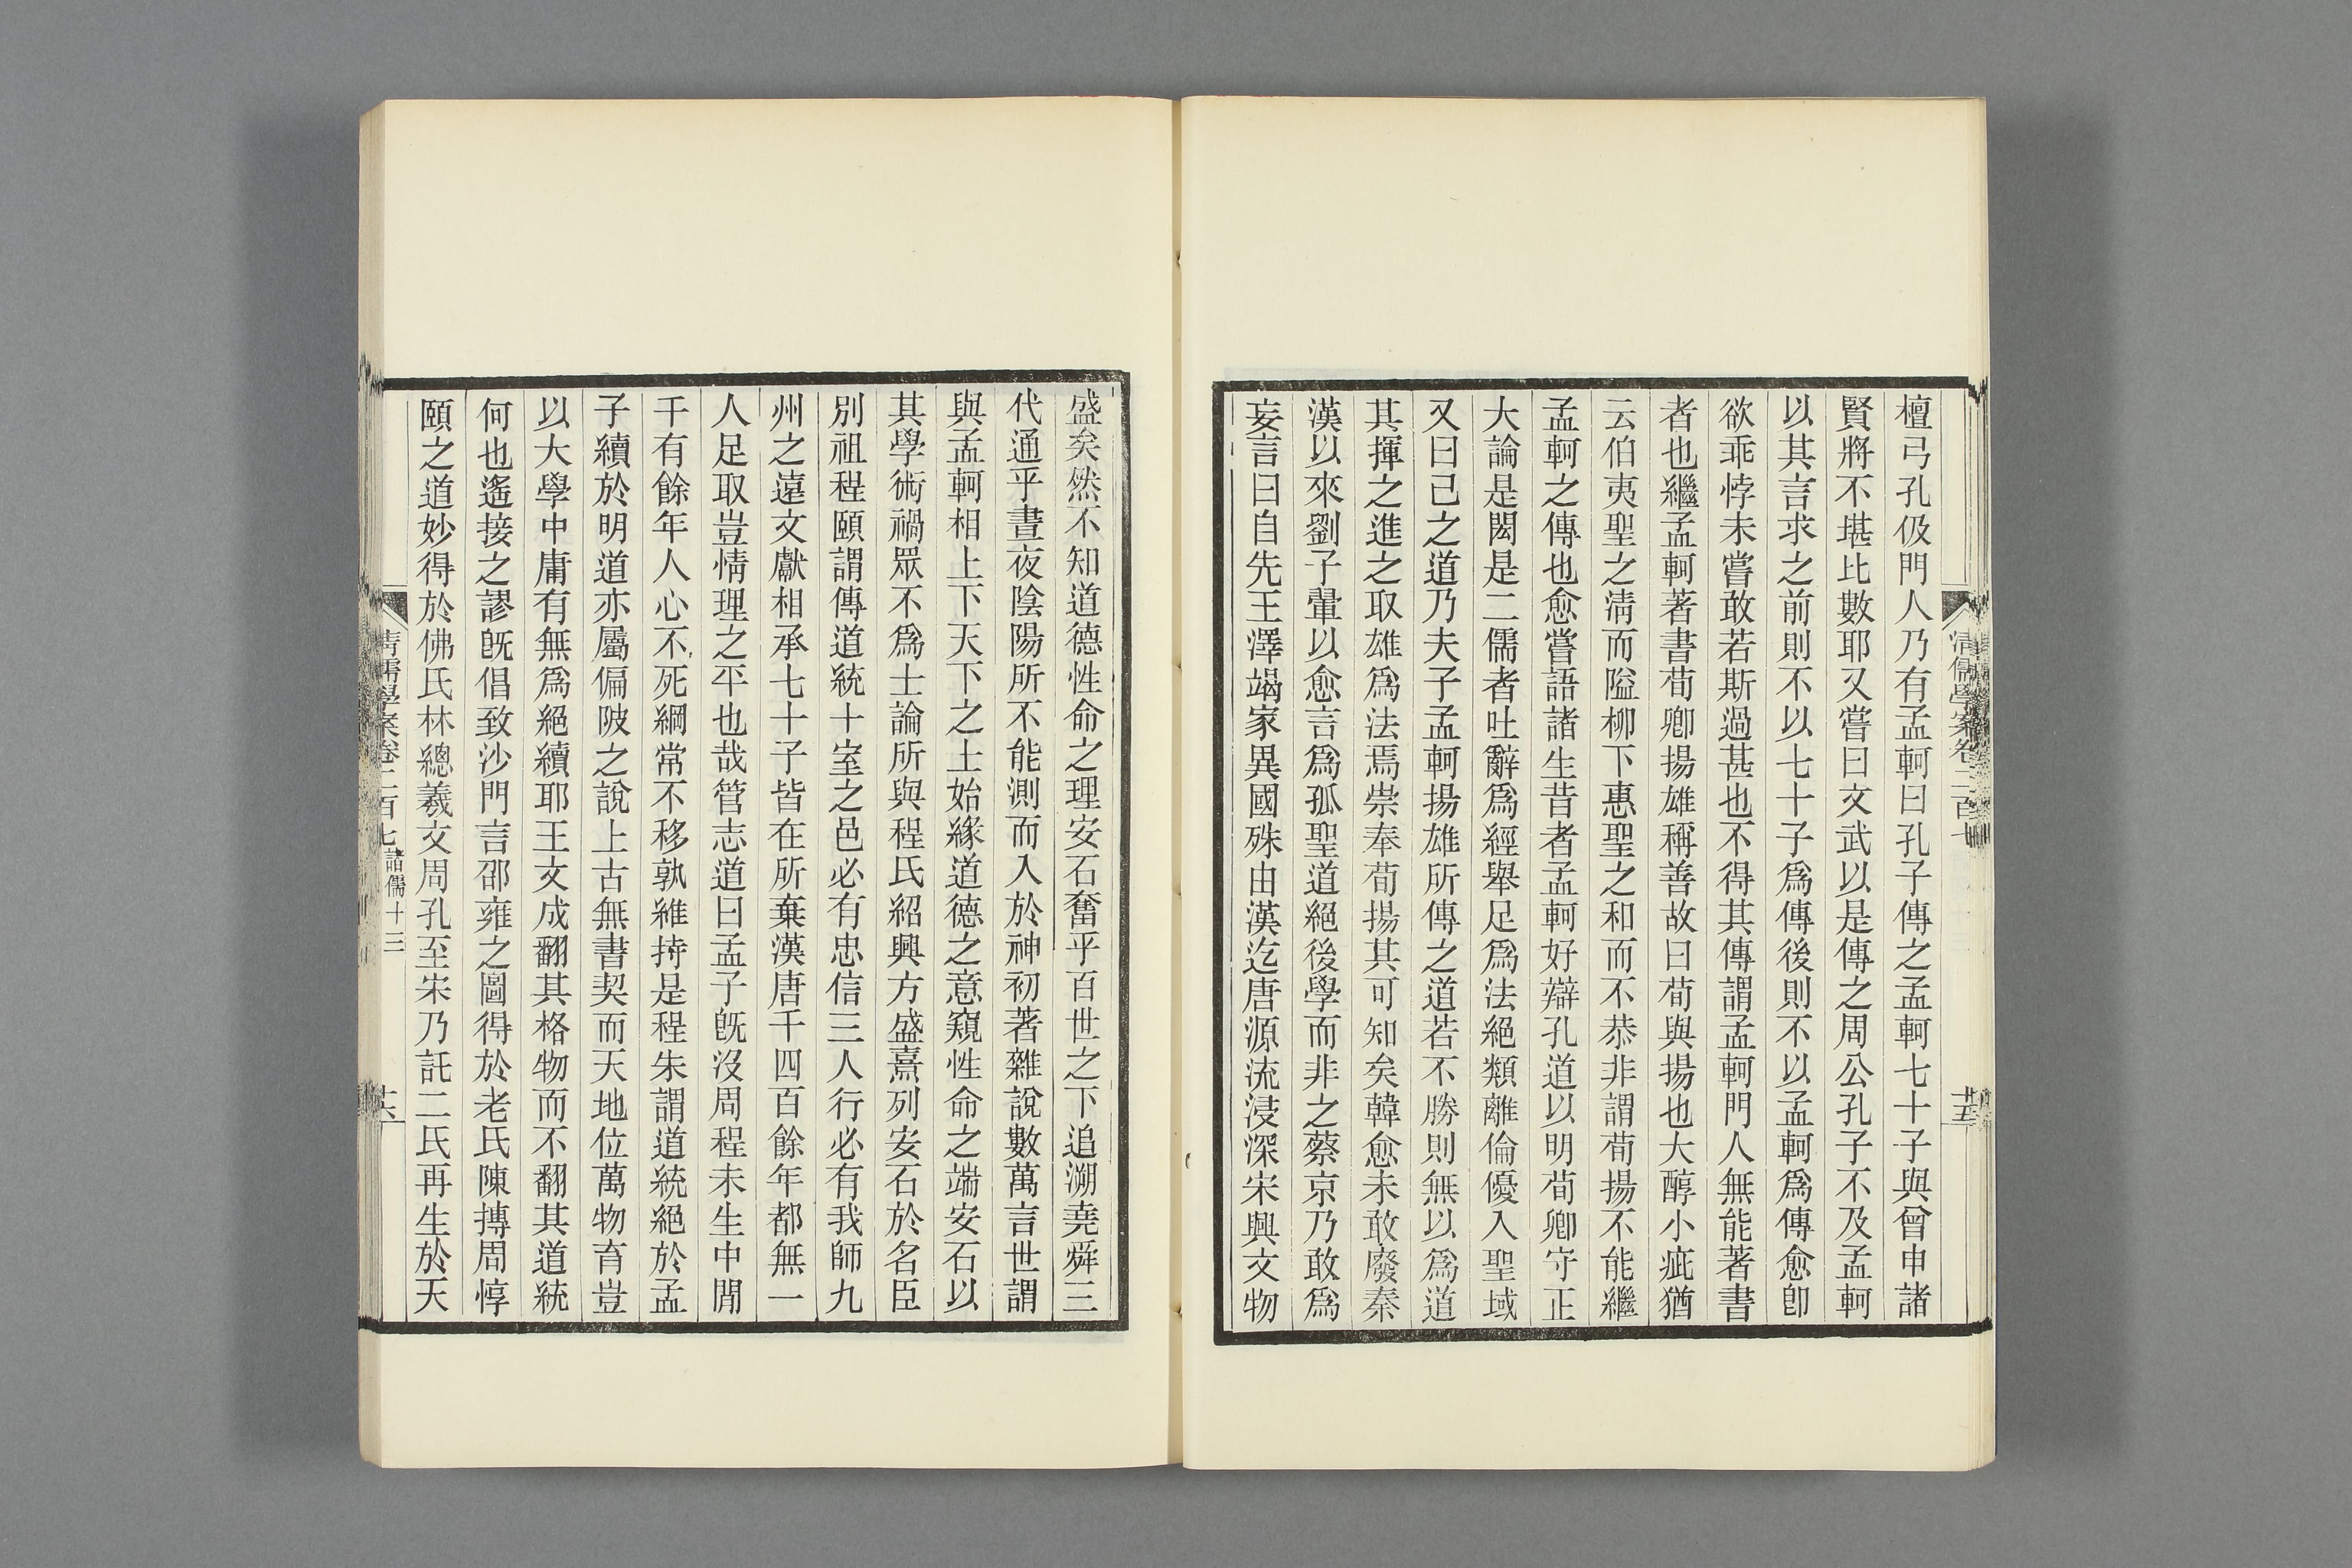 檀弓孔伋門人乃有孟軻曰孔子傳之孟軻七十子與曾申諸
賢將不堪比數耶又嘗曰文武以是傳之周公孔子不及孟軻
以其言求之前則不以七十子爲傳後則不以孟軻爲傳愈卽
欲乖悖未嘗敢若斯過甚也不得其傳謂孟軻門人無能著書
者也繼孟軻著書荀卿揚雄稱善故曰荀與揚也大醇小疵猶
云伯夷聖之淸而隘柳下惠聖之和而不恭非謂荀揚不能繼
孟軻之傳也愈嘗語諸生昔者孟軻好辯孔道以明荀卿守正
大論是閎是二儒者吐辭爲經舉足爲法絕類離倫優入聖域
又曰己之道乃夫子孟軻揚雄所傳之道若不勝則無以爲道
其揮之進之取雄爲法焉崇奉荀揚其可知矣韓愈未敢廢秦
漢以來劉子翬以愈言爲孤聖道絕後學而非之蔡京乃敢爲
妄言曰自先王澤竭家異國殊由漢迄唐源流浸深宋興文物
盛矣然不知道德性命之理安石奮乎百世之下追溯堯舜三
代通乎晝夜陰陽所不能測而入於神初著雜說數萬言世謂
與孟軻相上下天下之士始緣道德之意窺性命之端安石以
其學術禍眾不爲士論所與程氏紹興方盛熹列安石於名臣
別祖程頤謂傳道統十室之邑必有忠信三人行必有我師九
州之遠文獻相承七十子皆在所棄漢唐千四百餘年都無一
人足取豈情理之平也哉管志道曰孟子旣沒周程未生中閒
千有餘年人心不死綱常不移孰維持是程朱謂道統絕於孟
子續於明道亦屬偏陂之說上古無書契而天地位萬物育豈
以大學中庸有無爲絕續耶王文成翻其格物而不翻其道統
何也遙接之謬旣倡致沙門言邵雍之圖得於老氏陳摶周惇
頤之道妙得於佛氏林總羲文周孔至宋乃託二氏再生於天
清儒學案卷二百七 諸儒十三